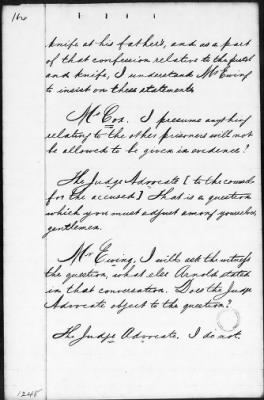 160
knife at his father's, and as a part
of that confession relative to the pistol
and knife, I understand Mr Ewing
to insist on these statements
Mr Cox. I presume anything
relating to the other prisoners will not
be allowed to be given in evidence?
The Judge Advocate [to the counsel
for the accused] That is a question
which you must adjust among yourselves,
gentlemen.
Mr Ewing, I will ask the witness
the question, what else Arnold stated
in that conversation. Does the Judge
Advocate object to the question?
The Judge Advocate. I do not.
1248